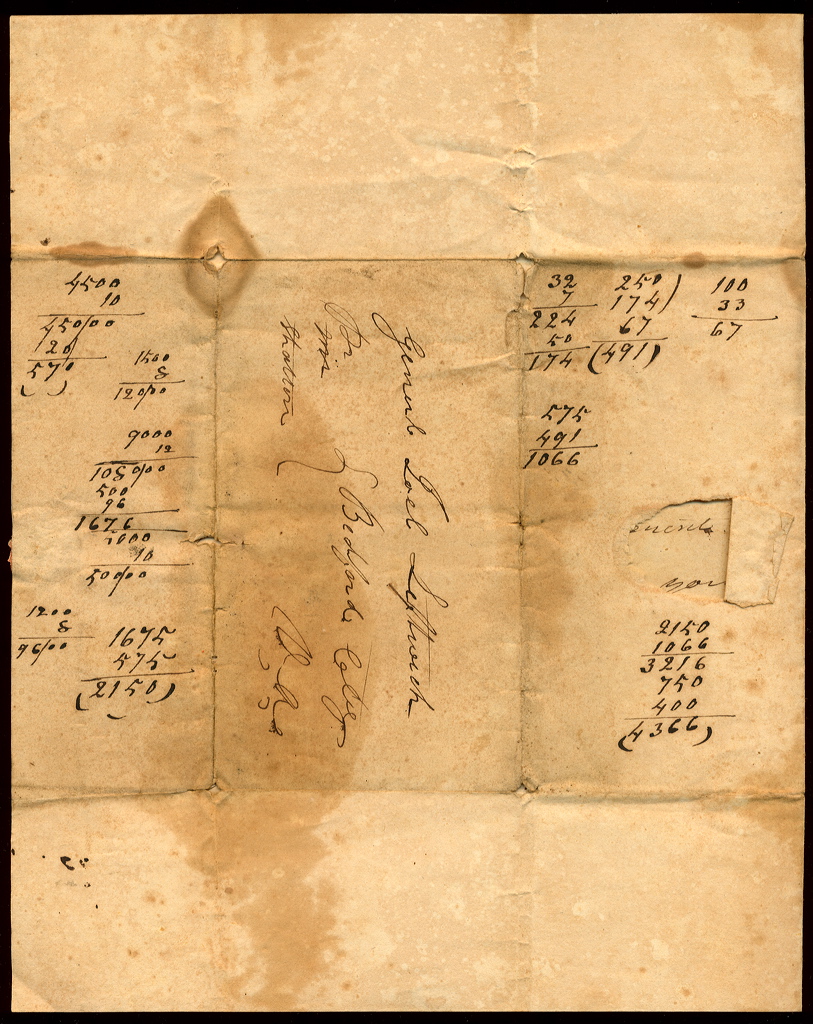 4500
10
450/00
20
570
1500
8
120/00
9000
12
108 0/00
500
96
1676
5000
10
50 0/00
1200
8
96/00
1675
575
(2150)
Genérl Joel Leftwich
of Bedford Coty
Va
Pr
Mr
Shatton
32
7
224
50
174
250
174)
67
(491)
100
33
67
575
491
1066
your
2150
1066
3216
750
400
(4366)